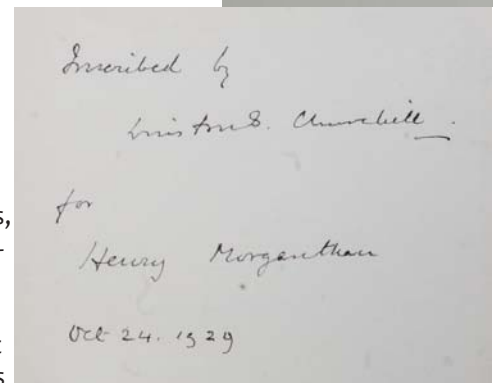 Inscribed by
Winston S. Churchill.
for
Henry Morgenthau
Oct 24. 1929